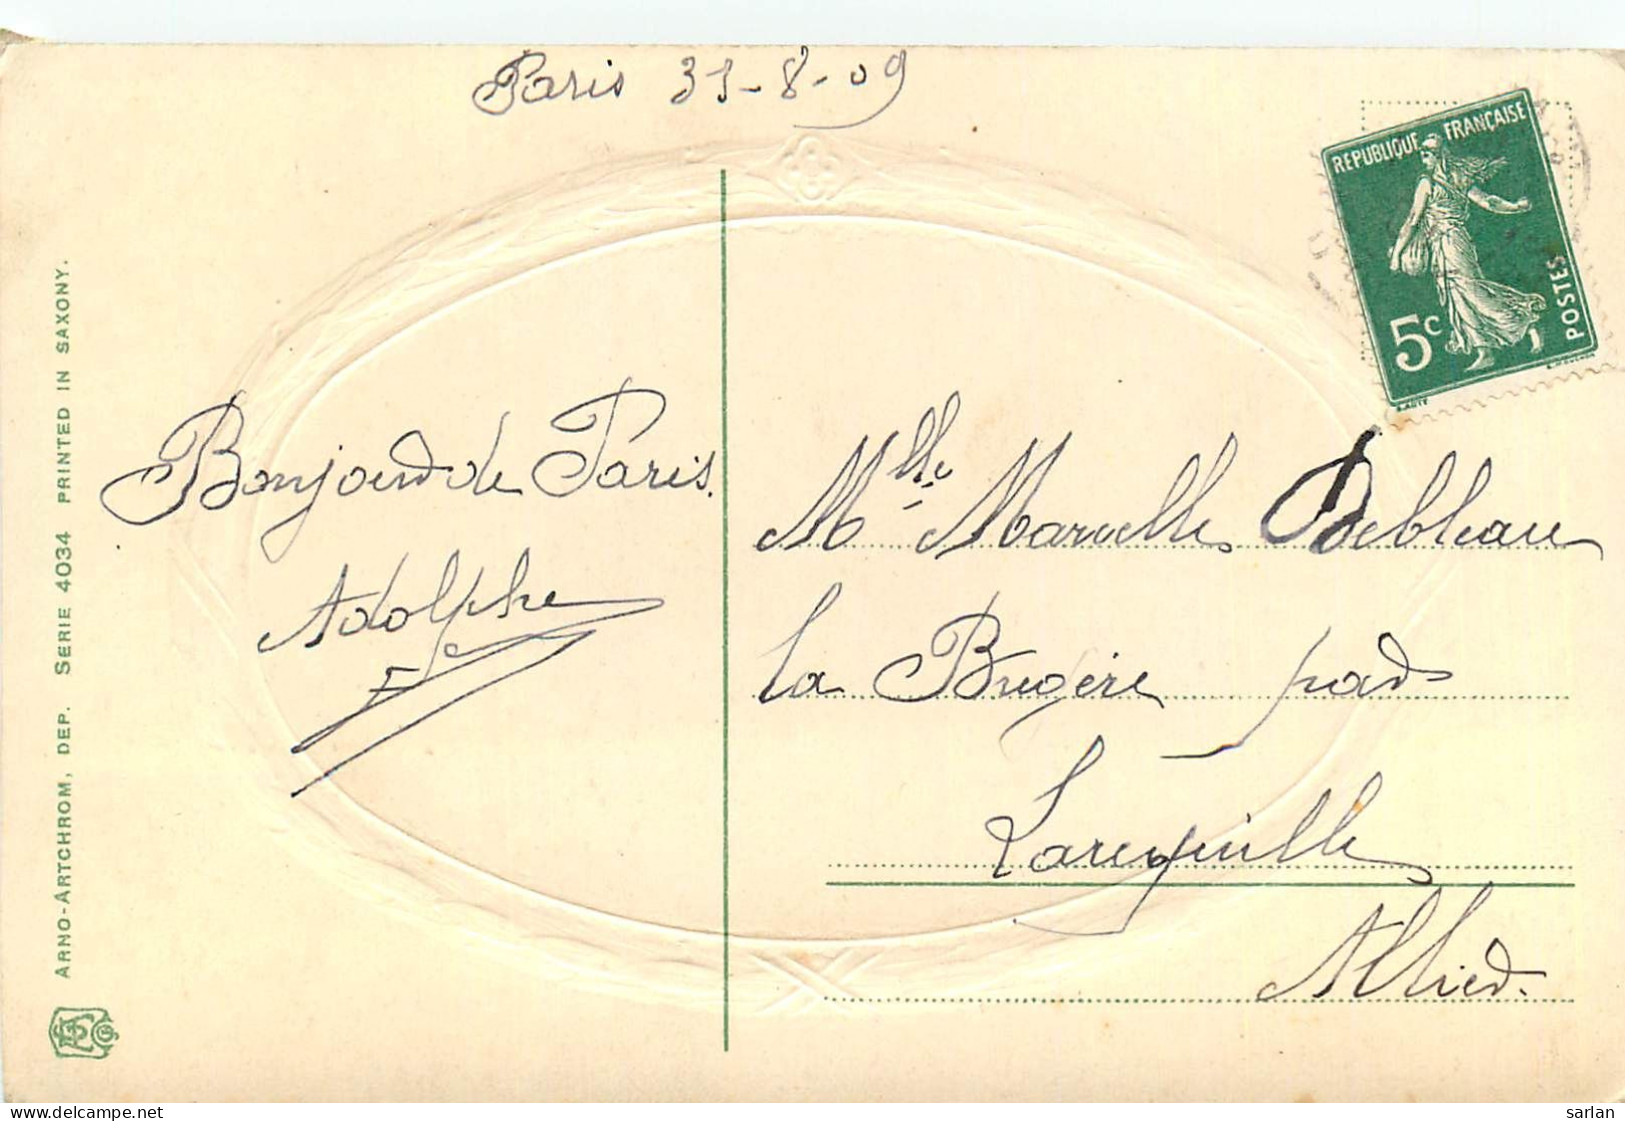 Paris 31-8-09
RÉPUBLIQUE FRANÇAISE
5c
POSTES
Bonjour de Paris.
Adolphe
Mlle Marcelle Debleau
La Brugère par
Lareguille
Allier.
ARNO-ARTCHROM, DEP. SERIE 4034 PRINTED IN SAXONY.
https://www.delcampe.net
sarlan